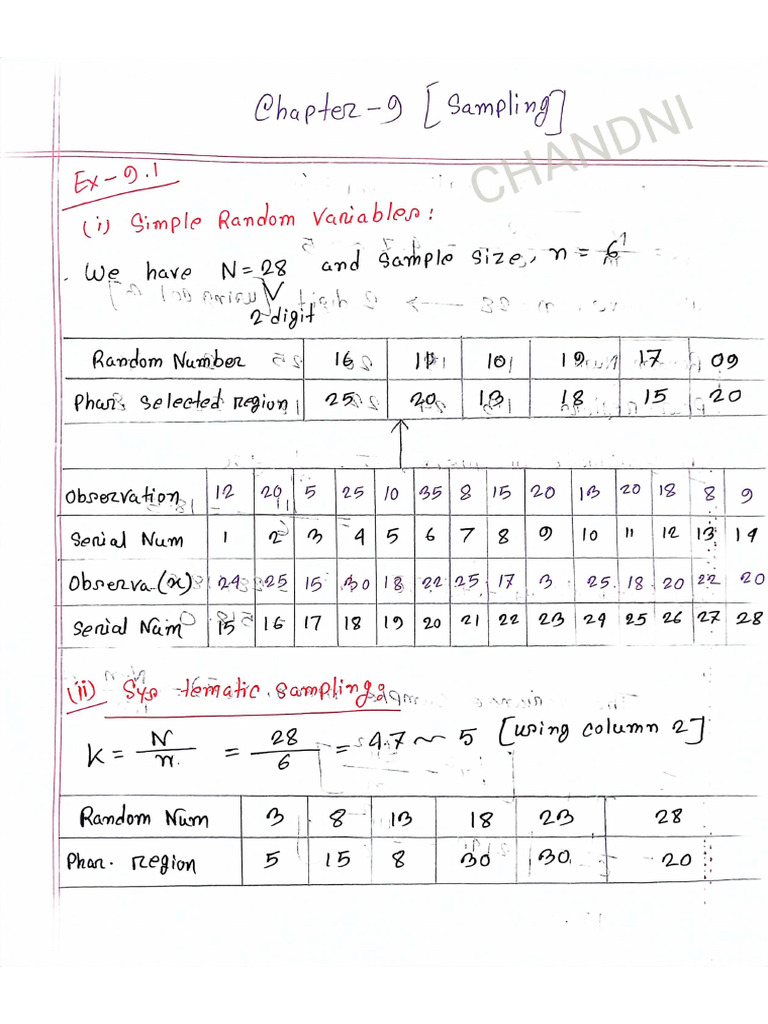 Chapter-9 [Sampling]
CHANDNI
Ex-9.1
(i) Simple Random Variables:
We have N=28 and sample size, n = 6
2 digit
Random Number 16 11 10 19 17 09
Phar. selected region 25 20 13 18 15 20
Observation 12 20 5 25 10 35 8 15 20 13 20 18 8 9
Serial Num 1 2 3 4 5 6 7 8 9 10 11 12 13 14
Observa.(x) 24 25 15 30 18 22 25 17 3 25 18 20 22 20
Serial Num 15 16 17 18 19 20 21 22 23 24 25 26 27 28
(ii) Systematic sampling:
K = N/n = 28/6 = 4.7 ~ 5 [using column 2]
Random Num 3 8 13 18 23 28
Phar. region 5 15 8 30 30 20